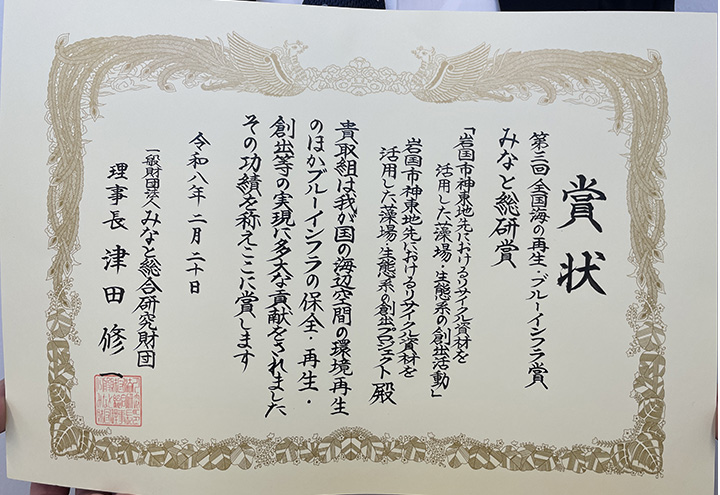 賞状
第三回 全国海の再生・ブルーインフラ賞
みなと総研賞
「岩国市神東地先におけるリサイクル資材を
活用した藻場・生態系の創出活動」
岩国市神東地先におけるリサイクル資材を
活用した藻場・生態系の創出プロジェクト 殿
貴取組は我が国の海辺空間の環境再生
のほかブルーインフラの保全・再生・
創出等の実現に多大な貢献をされました
その功績を称えここに賞します
令和八年二月二十日
一般財団法人みなと総合研究財団
理事長 津田修一